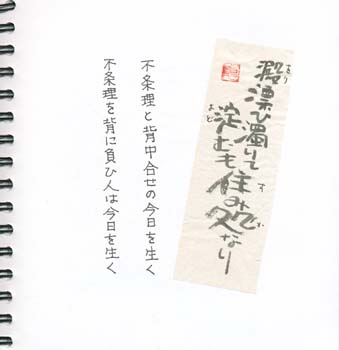 をり
澱漂ひ濁りて
よど
すか
淀むも住み処なり
不条理と背中合せの今日を生く
不条理を背に負ひ人は今日を生く